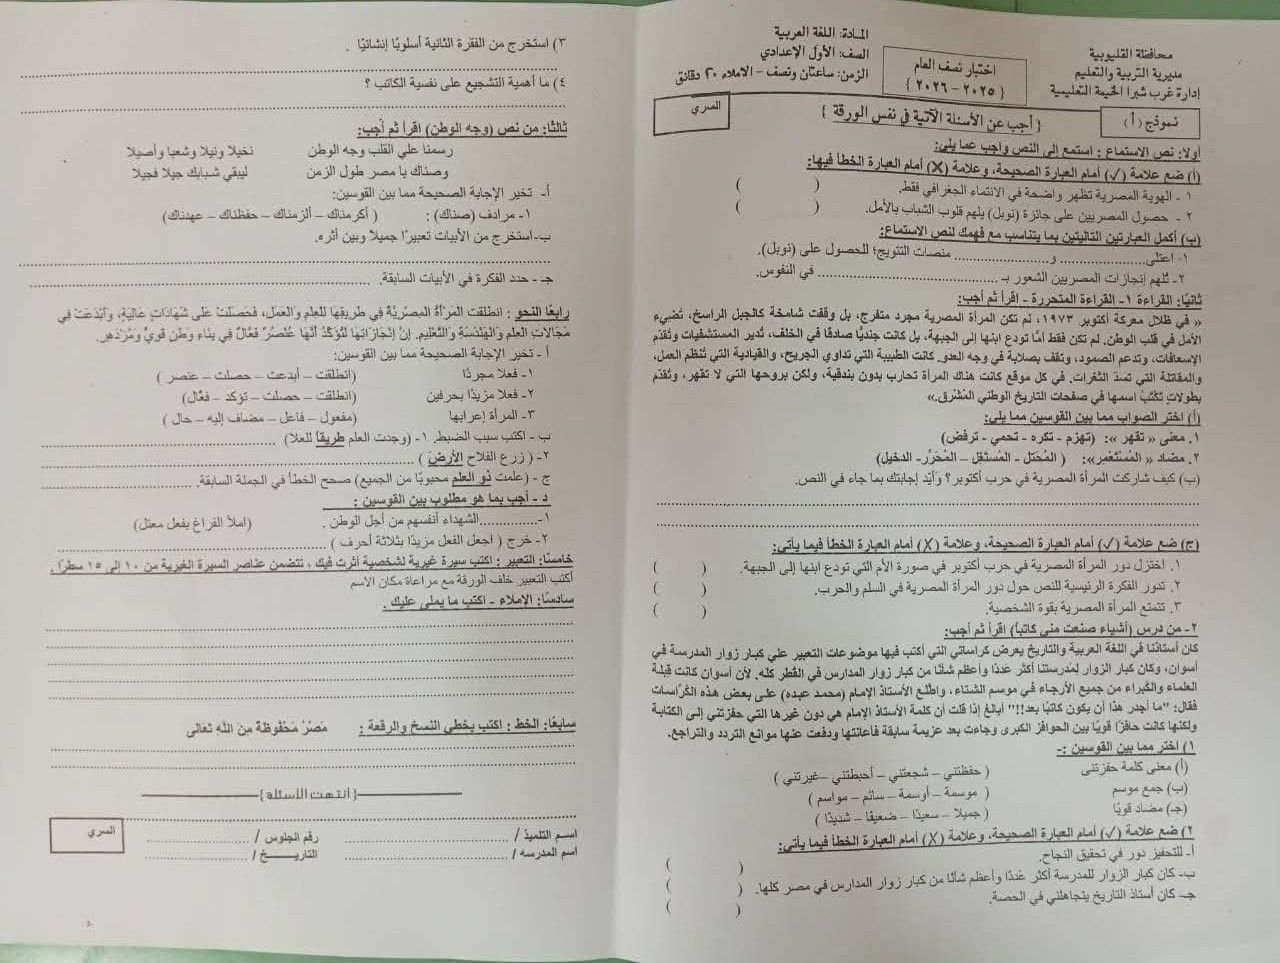 محافظة القليوبية
مديرية التربية والتعليم
إدارة غرب شبرا الخيمة التعليمية
اختبار نصف العام
{ ٢٠٢٥ – ٢٠٢٦ }
المادة: اللغة العربية
الصف: الأول الإعدادي
الزمن: ساعتان ونصف – الاملاء ٢٠ دقائق
نموذج (أ)
{ أجب عن الأسئلة الآتية في نفس الورقة }
السري
أولا: نص الاستماع : استمع إلى النص واجب عما يلي:
(أ) ضع علامة (√) أمام العبارة الصحيحة، وعلامة (X) أمام العبارة الخطأ فيها:
١ - الهوية المصرية تظهر واضحة في الانتماء الجغرافي فقط. ( )
٢ - حصول المصريين على جائزة (نوبل) يلهم قلوب الشباب بالأمل. ( )
(ب) أكمل العبارتين التاليتين بما يتناسب مع فهمك لنص الاستماع:
١- اعتلى.................. و.................. منصات التتويج؛ للحصول على (نوبل).
٢- تُلهم إنجازات المصريين الشعور بـ .................................. في النفوس.
ثانيًا: القراءة ١- القراءة المتحررة - اقرأ ثم أجب:
« في ظلال معركة أكتوبر ١٩٧٣، لم تكن المرأة المصرية مجرد متفرج، بل وقفت شامخة كالجبل الراسخ، تُضيء
الأمل في قلب الوطن. لم تكن فقط أمًا تودع ابنها إلى الجبهة، بل كانت جنديًا صادقًا في الخلف، تُدير المستشفيات وتقدّم
الإسعافات، وتدعم الصمود، وتقف بصلابة في وجه العدو. كانت الطبيبة التي تداوي الجريح، والقيادية التي تُنظم العمل،
والمقاتلة التي تسدّ الثغرات. في كل موقع كانت هناك المرأة تحارب بدون بندقية، ولكن بروحها التي لا تقهر، وتُقدّم
بطولاتٍ تُكْتَبُ اسمها في صفحات التاريخ الوطني المُشْرق.»
(أ) اختر الصواب مما بين القوسين مما يلي:
١. معنى « تقهر »: (تهزم - تكره - تحمي - ترفض)
٢. مضاد « المُسْتَعْمِر»: ( المُحتَل - المُستَغِل – المُحَرَّر- الدخيل)
(ب) كيف شاركت المرأة المصرية في حرب أكتوبر؟ وأيّد إجابتك بما جاء في النص.
(ج) ضع علامة (√) أمام العبارة الصحيحة، وعلامة (X) أمام العبارة الخطأ فيما يأتي:
١. اختزل دور المرأة المصرية في حرب أكتوبر في صورة الأم التي تودع ابنها إلى الجبهة. ( )
٢. تدور الفكرة الرئيسية للنص حول دور المرأة المصرية في السلم والحرب. ( )
٣. تتمتع المرأة المصرية بقوة الشخصية. ( )
٢- من درس (أشياء صنعت مني كاتبا) اقرأ ثم أجب:
كان أستاذنا في اللغة العربية والتاريخ يعرض كراساتي التي أكتب فيها موضوعات التعبير علي كبار زوار المدرسة في
أسوان، وكان كبار الزوار لمَدرستنا أكثر عَددًا وأعظم شأنًا من كبار زوار المدارس في القُطر كلّه. لأن أسوان كانت قبلة
العلماء والكبراء من جميع الأرجاء في موسم الشتاء، واطّلع الأستاذ الإمام (محمد عبده) على بعض هذه الكُرَّاسات
فقال: "ما أجدر هذا أن يكون كاتبًا بعد!!" أبالغ إذا قلت أن كلمة الأستاذ الإمام هي دون غيرها التي حفزتني إلى الكتابة
ولكنها كانت حافزًا قويًا بين الحوافز الكبرى وجاءت بعد عزيمة سابقة فأعانتها ودفعت عنها موانع التردد والتراجع،
١) اختر مما بين القوسين :-
(أ) معنى كلمة حفزتنى ( حفظتني – شجعتني – أحبطتني –غيرتني )
(ب) جمع موسم ( موسمة – أوسمة – سائم – مواسم )
(جـ) مضاد قويًا ( جميلا – سعيدًا – ضعيفًا – شديدًا )
٢) ضع علامة (√) أمام العبارة الصحيحة، وعلامة (X) أمام العبارة الخطأ فيما يأتي:
أ- للتحفيز دور في تحقيق النجاح. ( )
ب- كان كبار الزوار للمدرسة أكثر عَددًا وأعظم شأنًا من كبار زوار المدارس في مصر كلها. ( )
جـ- كان أستاذ التاريخ يتجاهلني في الحصة. ( )
٣) استخرج من الفقرة الثانية أسلوبًا إنشائيًا .
٤) ما أهمية التشجيع على نفسية الكاتب ؟
ثالثًا: من نص (وجه الوطن) اقرأ ثم أجب:
رسمنا علي القلب وجه الوطن نخيلا ونيلا وشعبا وأصيلا
وصناك يا مصر طول الزمن ليبقي شبابك جيلا فجيلا
أ- تخير الإجابة الصحيحة مما بين القوسين:
١- مرادف (صناك) : ( أكرمناك – ألزمناك – حفظناك – عهدناك)
ب-استخرج من الأبيات تعبيرًا جميلاً وبين أثره.
جـ - حدد الفكرة في الأبيات السابقة.
رابعًا النحو : انطلقت المَرْأةُ المِصريَّةُ فِي طَريقِهَا لِلعِلمِ وَالعَمَل، فَحَصَلَتْ عَلَى شَهَادَاتٍ عَالِيَةٍ، وَأَبْدَعَتْ فِي
مَجَالَاتِ العِلم وَالهَنْدَسَةِ وَالتَّعْلِيم. إِنَّ إِنْجَازَاتِهَا لتُؤَكِّدُ أَنَّهَا عُنْصُرٌ فَعَّالٌ فِي بِنَاءِ وَطَنٍ قَويٍّ وَمُزْدَهِرٍ.
أ - تخير الإجابة الصحيحة مما بين القوسين:
١- فعلا مجردًا (انطلقت – أبدعت – حصلت – عنصر )
٢- فعلا مزيدًا بحرفين (انطلقت – حصلت – تؤكد – فعَّال)
٣- المرأة إعرابها (مفعول – فاعل – مضاف إليه – حال )
ب – اكتب سبب الضبط. ١- (وجدت العلم طريقاً للعلا)
٢- ( زرع الفلاح الأرضَ )
ج – (علمت ذو العلم محبوبًا من الجميع) صحح الخطأ في الجملة السابقة.
د – أجب بما هو مطلوب بين القوسين :
١-............الشهداء أنفسهم من أجل الوطن . (املأ الفراغ بفعل معتل)
٢- خرج ( اجعل الفعل مزيدًا بثلاثة أحرف )
خامسًا: التعبير : اكتب سيرة غيرية لشخصية أثرت فيك ، تتضمن عناصر السيرة الغيرية من ١٠ إلى ١٥ سطرًا .
أكتب التعبير خلف الورقة مع مراعاة مكان الاسم
سادسًا: الإملاء - اكتب ما يملى عليك .
سابعًا: الخط : اكتب بخطي النسخ والرقعة : مَصْرُ مَحْفُوظَةٌ مِنَ اللهِ تَعَالَى
{ انتهت الأسئلة }
اسم التلميذ / رقم الجلوس /
اسم المدرسة / التاريخ /
السري